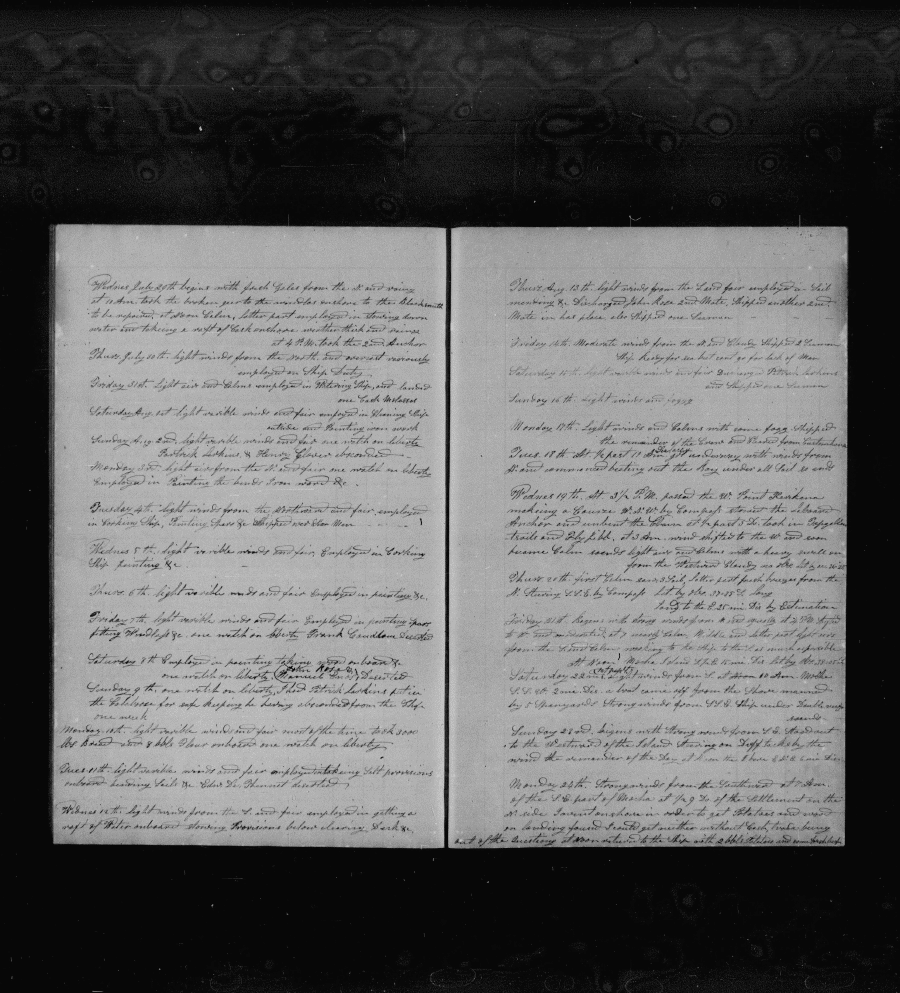 Wednes July 29th begins with fresh Gales from the N and rainy
at 10 Am. took the broken gear to the windlas onshore to the Blacksmith
to be repaired, at Noon Calm, latter part employed in stowing down
water and taking a raft of Cask onshore weather thick and rainy
at 4 P.M. took the 2nd Anchor
Thurs July 30th light winds from the North and overcast variously
employed on Ship Duty
Friday 31st light airs and Calms employed in Watering Ship, and landed
one Cask Molasses
Saturday Aug 1st light varible winds and fair employed in Cleaning Ship
outside and Painting iron work
Sunday Aug 2nd light varible winds and fair one watch on liberty
Patrick Larkins & Henry Glover absconded
Monday 3rd light airs from the N and fair one watch on liberty
Employed in Painting the bends Iron work &c
Tuesday 4th light winds from the Northward and fair, employed
in Corking Ship, Painting Spars &c Shipped one Man
Wednes 5th light varible winds and fair, Employed in Corking
Ship painting &c
Thurs 6th light varible winds and fair Employed in painting &c.
Friday 7th light varible winds and fair Employed in painting spars
fitting Windlass &c. one watch on liberty Frank Deserted
Saturday 8th Employed in painting taking wood onboard &c
one watch on liberty Manuel Deserted
Sunday 9th one watch on liberty, Patrick Larkins put in
the Caleboose for safe keeping he having absconded from the Ship
one week
Monday 10th light varible winds and fair most of the time took 3000
lbs Bread and 8 bbls Flour onboard one watch on liberty
Tues 11th light varible winds and fair employed taking Salt provisions
onboard bending Sails &c deserted
Wednes 12th light winds from the S. and fair employed in getting a
raft of Water onboard stowing Provisions below clearing Deck &c.
Thurs Aug 13th light winds from the S and fair employed in Sail
mending &c Discharged John Rose 2nd Mate, Shipped another 2nd
Mate in his place, also Shipped one Seaman
Friday 14th Moderate winds from the N and Cloudy Shipped 2 Seamen
Ship ready for sea but can't go for lack of Men
Saturday 15th light varible winds and fair
and Shipped one Seaman
Sunday 16th light winds and foggy
Monday 17th Light winds and Calms with some fogg Shipped
the remainder of the Crew and
Tues. 18th At ½ past 10 Am got underway with winds from
N. and commenced beating out the Bay under all Sail so ends
Wednes 19th At 3½ P.M. passed the W. Point
making a Course W.N.W. by Compass stowed the
Anchor and unbent the Chain at ½ past 5 Do. took in Topgallan
trails and Fly jibb, at 3 Am. wind shifted to the W and soon
became Calm so ends light airs and Calms with a heavy swell on
from the Westward Cloudy
Thurs 20th first Calm saw 3 Sail, latter part fresh breezes from the
N. Steering S.S.E by Compass Lat by Obs. Long
Land to the E. 25 mis Dis by Estimation
Friday 21st Begins with strong winds from
to W and moderated, at 7 nearly Calm, Middle and latter part light airs
from the Southward making to the Ship to the
At Noon Mocha Island S.b.E 15 mis Dis Lat by Obs.
Saturday 22nd light winds from S. at Noon Mocha
S.S.E. 2 mis Dis. a boat came off from the Shore manned
by 5 Spanyards Strong winds from S.S.E. Ship under Double reefs
so ends
Sunday 23rd begins with Strong winds from S.E. Stood out
to the Westward of the Island Steering on Diff tacks by the
wind the remainder of the Day at Noon the Shore
Monday 24th Strong winds from the Southward at 7 Am.
of the S.E part of Mocha at ½ 9 Do of the Settlement on the
N. side I went onshore in order to get Potatoes and wood
on landing found I could get neither without Cash, trade being
out of the Question, at Noon returned to the Ship with 2 bbls Potatoes and some